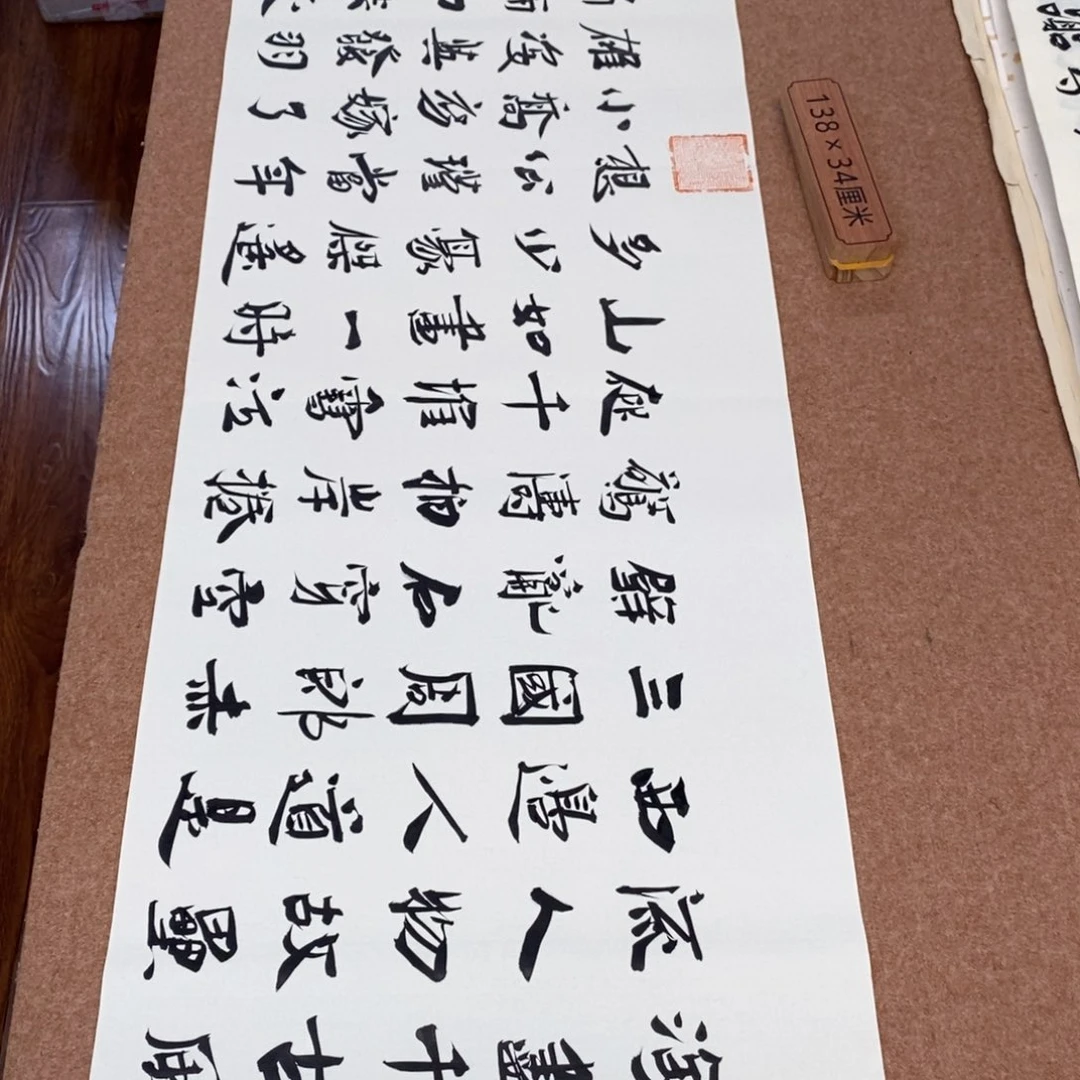 淘盡千古風
流人物故壘
西邊人道是
三國周郎赤
壁亂石穿空
驚濤拍岸捲
起千堆雪江
山如畫一時
多少豪傑遙
想公瑾當年
小喬初嫁了
雄姿英發羽
138×34厘米